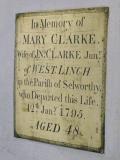 In Memory of
MARY CLARKE.
Wife of Jno. CLARKE Junr.
of WEST LINCH
in the Parish of Selworthy,
who Departed this Life
12th Janry. 1795.
AGED 48.